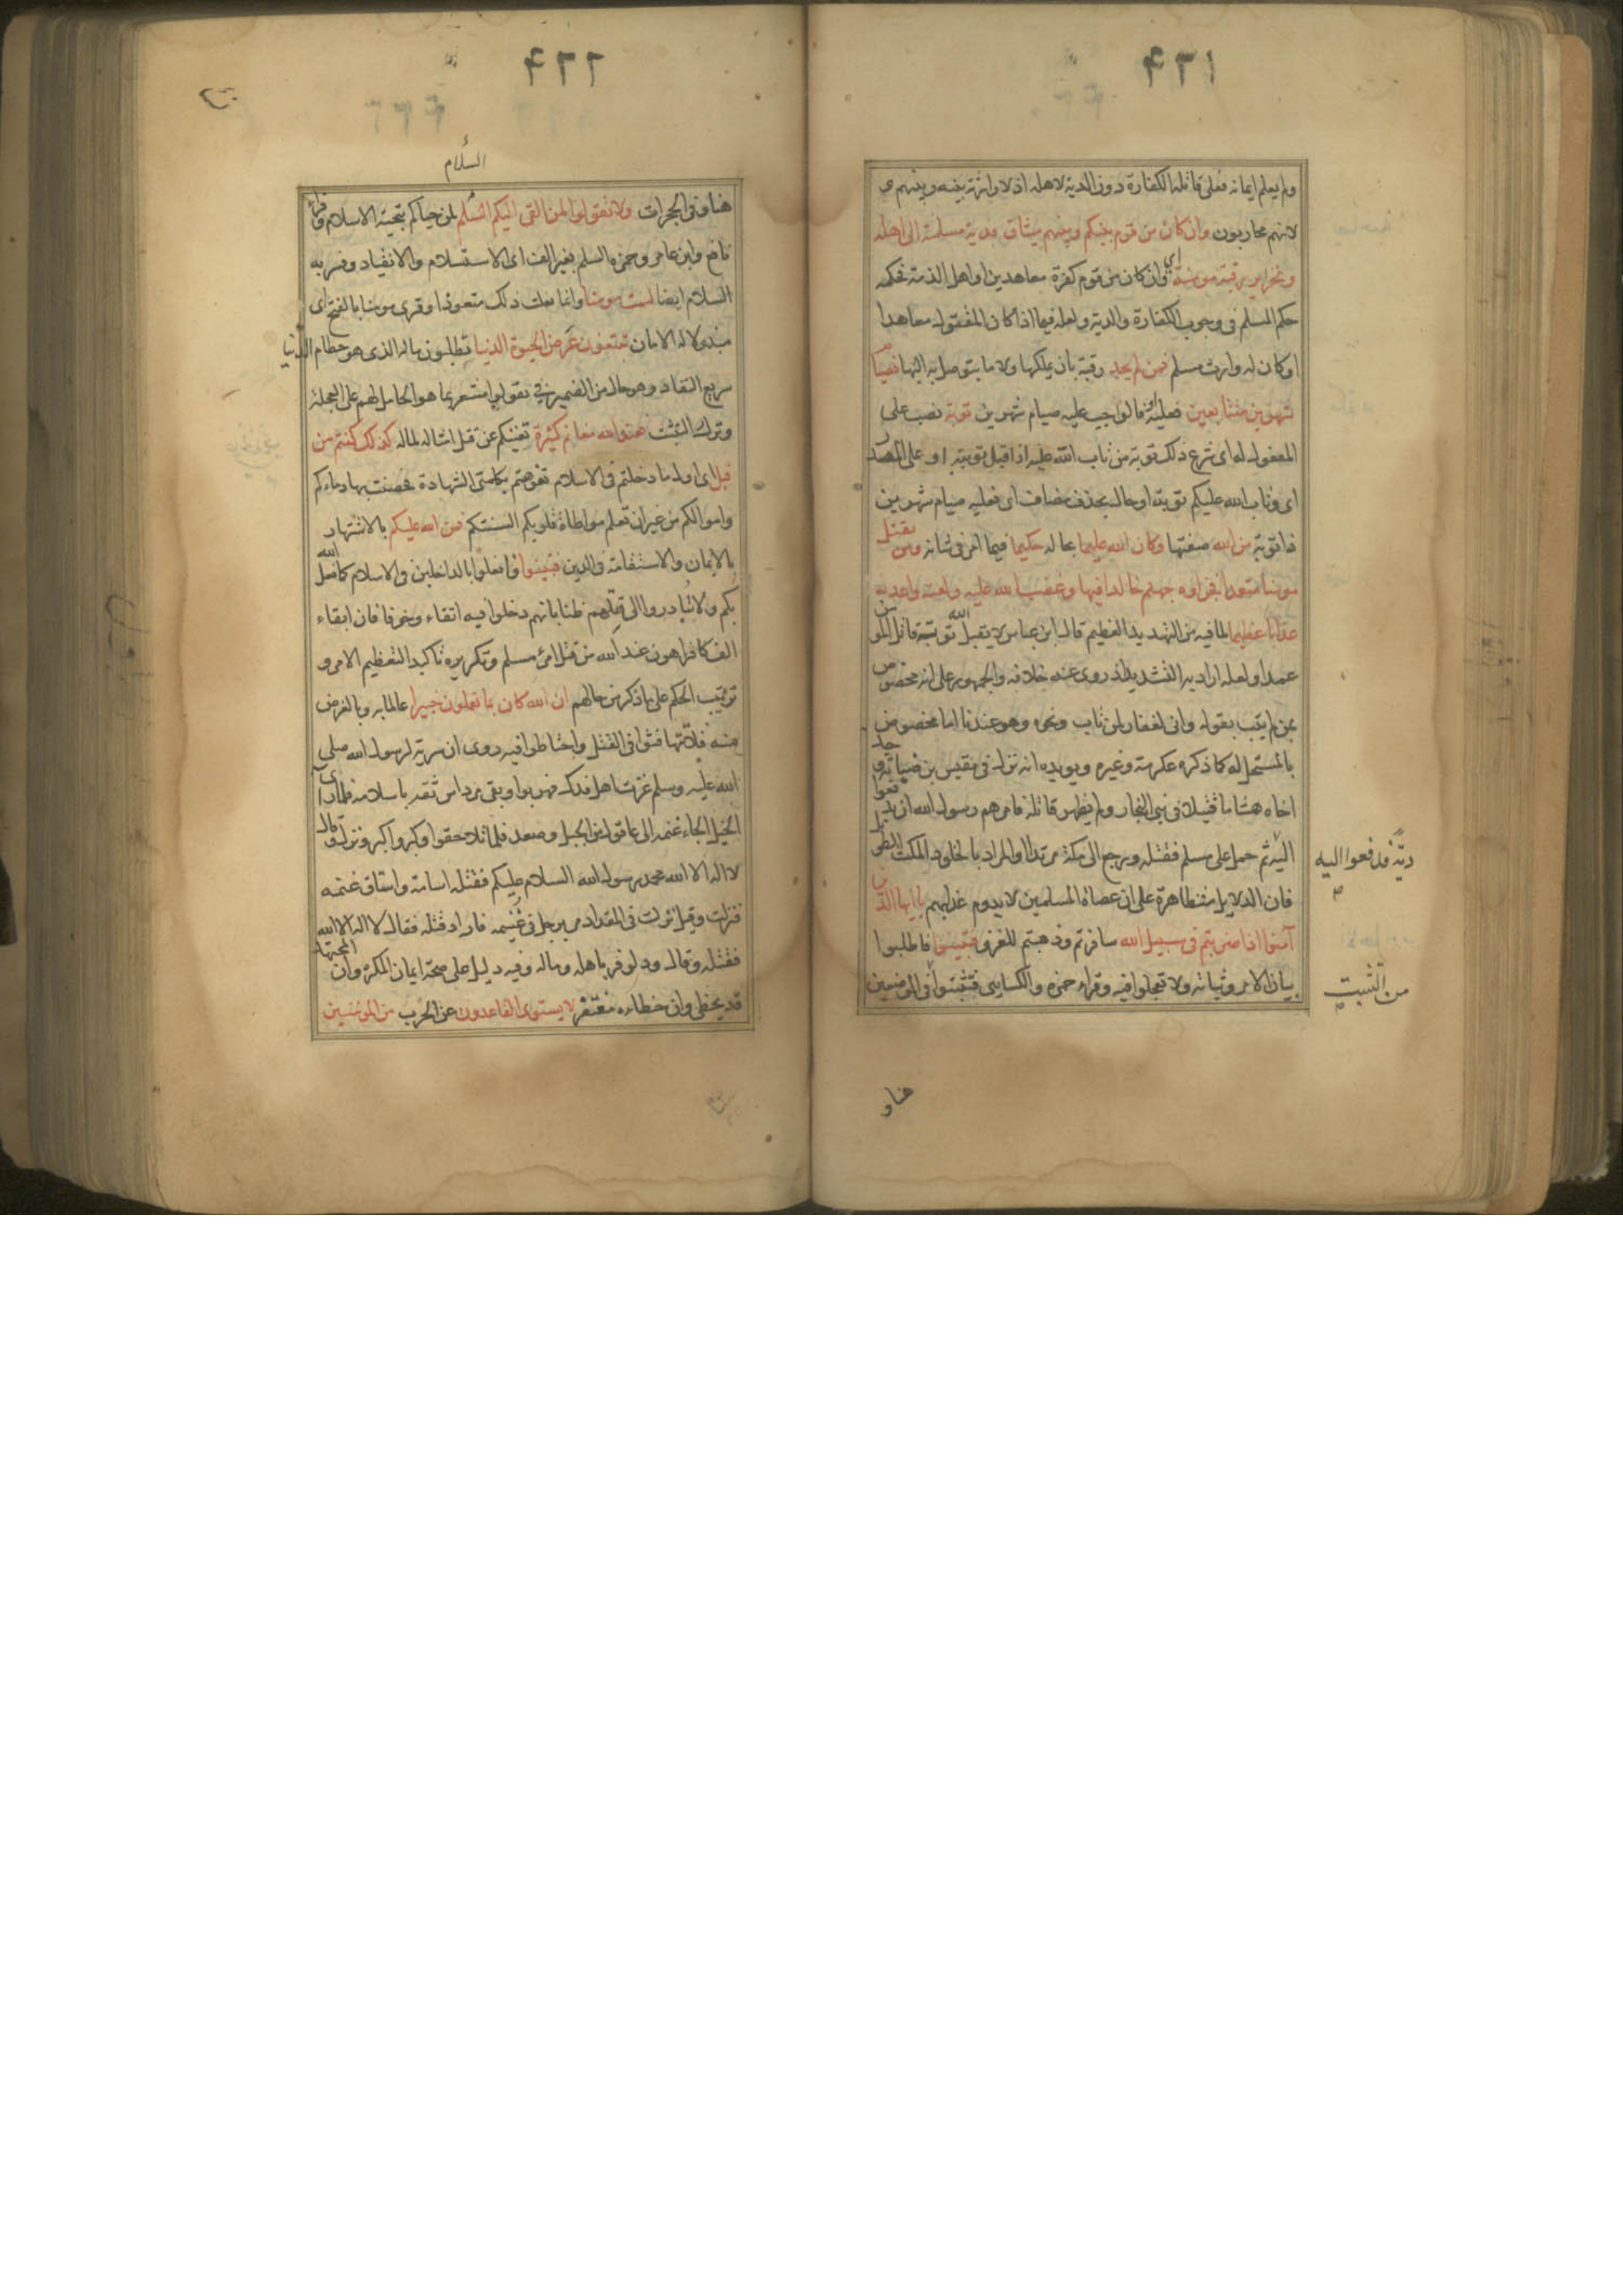 ۴۳۱
ولم يعلم ايمانه فعلى قاتله الكفارة دون الدية لاهله اذ لا وراثة بينه وبينهم و
لانهم محاربون وان كان من قوم بينكم وبينهم ميثاق فدية مسلمة الى اهله
وتحرير رقبة مومنة اى وان كان من قوم كفرة معاهدين او اهل الذمة فحكمه
حكم المسلم فى وجوب الكفارة والدية ولعله فيما اذا كان المقتول معاهدا
او كان له وارث مسلم فمن لم يجد رقبة بان يملكها ولا ما يتوصل به اليها فصيام
شهرين متتابعين فعليه او فالواجب عليه صيام شهرين توبة نصب على
المفعول له اى شرع ذلك توبة من تاب الله عليه اذا قبل توبته او على المصدر
اى وتاب الله عليكم توبة او حال بحذف مضاف اى فعليه صيام شهرين
ذا توبة من الله صفتها وكان الله عليما بحاله حكيما فيما امر فى شانه ومن يقتل
مومنا متعمدا فجزاوه جهنم خالدا فيها وغضب الله عليه ولعنه واعد له
عذابا عظيما لما فيه من التهديد العظيم قال ابن عباس لا يقبل الله توبة قاتل المومن
عمدا ولعله اراد به التشديد اذ روى عنه خلافه والجمهور على انه مخصوص
بمن لم يتب بقوله وانى لغفار لمن تاب ونحوه وهو عندنا اما مخصوص
بالمستحل له كما ذكره عكرمة وغيره ويويده انه نزل فى مقيس بن ضبابة وجد
اخاه هشاما قتيلا فى بنى النجار ولم يظهر قاتله فامرهم رسول الله ان يدفعوا
اليه ثم حمل على مسلم فقتله ورجع الى مكة مرتدا او المراد بالخلود المكث الطويل
ديته فدفعوا اليه
فان الدلايل متظاهرة على ان عصاة المسلمين لا يدوم عذابهم يا ايها الذين
آمنوا اذا ضربتم فى سبيل الله سافرتم وذهبتم للغزو فتبينوا فاطلبوا
بيان الامر وثباته ولا تعجلوا فيه وقراء حمزه والكسايى فتثبتوا فى الموضعين
من التثبت
هنا و
۴۳۲
السلام
هنا وفى الحجرات ولا تقولوا لمن القى اليكم السلم لمن حياكم بتحية الاسلام وقراء
نافع وابن عامر وحمزه السلم بغير الف اى الاستسلام والانقياد وفسر به
السلام ايضا لست مومنا وانما فعلت ذلك متعوذا وقرى مومنا بالفتح اى
مبذولا له الامان تبتغون عرض الحيوة الدنيا تطلبون ماله الذى هو حطام الدنيا
سريع النفاد وهو حال من الضمير فى تقولوا مشعر بما هو الحامل لهم على العجلة
وترك التثبت فعند الله مغانم كثيرة تغنيكم عن قتل امثاله لماله كذلك كنتم من
قبل اى اول ما دخلتم فى الاسلام تفوهتم بكلمتى الشهادة فحصنت بها دماءكم
واموالكم من غير ان تعلم مواطاة قلوبكم السنتكم فمن الله عليكم بالاشتهار
بالايمان والاستقامة فى الدين فتبينوا وافعلوا بالداخلين فى الاسلام كما فعل الله
بكم ولا تبادروا الى قتلهم ظنا بانهم دخلوا فيه اتقاء وخوفا فان ابقاء
الف كافر اهون عند الله من قتل امرئ مسلم وتكريره تاكيد لتعظيم الامر و
ترتيب الحكم على ما ذكر من حالهم ان الله كان بما تعملون خبيرا عالما به وبالغرض
منه فلا تتهافتوا فى القتل واحتاطوا فيه روى ان سرية لرسول الله صلى
الله عليه وسلم غزت اهل فدك فهربوا وبقى مرداس ثقة باسلامه فلما راى
الخيل الجاء غنمه الى عاقول من الجبل وصعد فلما تلاحقوا وكبروا كبر ونزل وقال
لا اله الا الله محمد رسول الله السلام عليكم فقتله اسامة واستاق غنمه
فنزلت وقيل نزلت فى المقداد مر برجل فى غنيمه فاراد قتله فقال لا اله الا الله
فقتله وقال ود لو فر باهله وماله وفيه دليل على صحة ايمان المكره وان المجتهد
قد يخطى وان خطاءه مغتفر لا يستوى القاعدون عن الحرب من المؤمنين